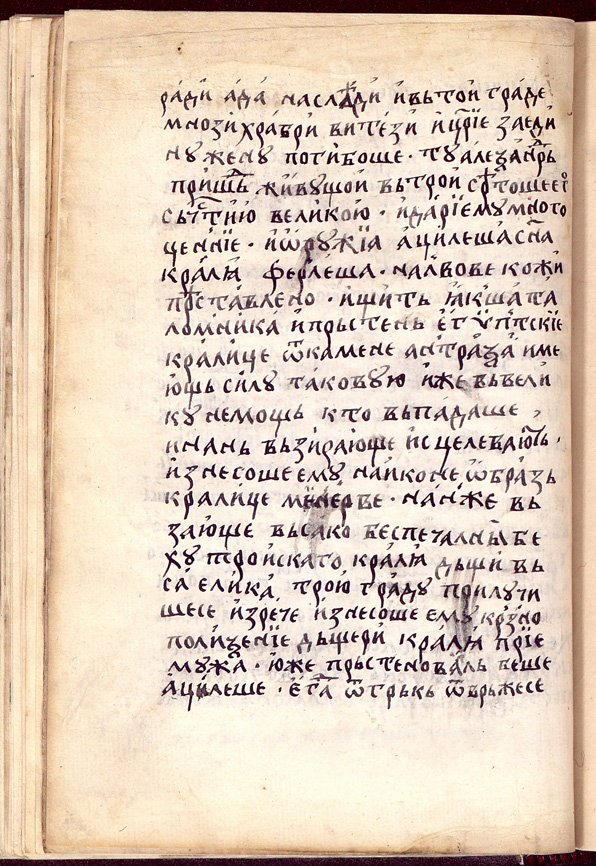 ради ада наслади ивьтои граде
мнози храбри витези ицр҃їе заеди
ну жену погибоше · ту алеѯандрь
пришⷣь живущои вь трои сртошеего
сьчⷭтїю великою · идарїемумного
ценнїе · иѡружїа ацилешасна
кралꙗ ферлеша · налвове кожи
прⷣставлено · ищить ꙗкшата
ломника ипрьстень егѵптскїе
кралице ѿкамене антраѯа име
ющь силу таковую иже вьвели
ку немощь кто вьпадаше ,
инань вьзирающе исцелевають ·
изнесоше ему наиконе ѡбразь
кралице минерве · нанже вь
зающе вьсако беспечалны бе
ху троискаго кралꙗ дьщи вь
са елика трою граду прилучи
шесе изрече изнесоше ему кѡзно
полиѯенїе дьщери кралꙗ прїе
мужа · юже прьстеноваль беше
ацилеше · ега ѿгрькь ѿврьжесе